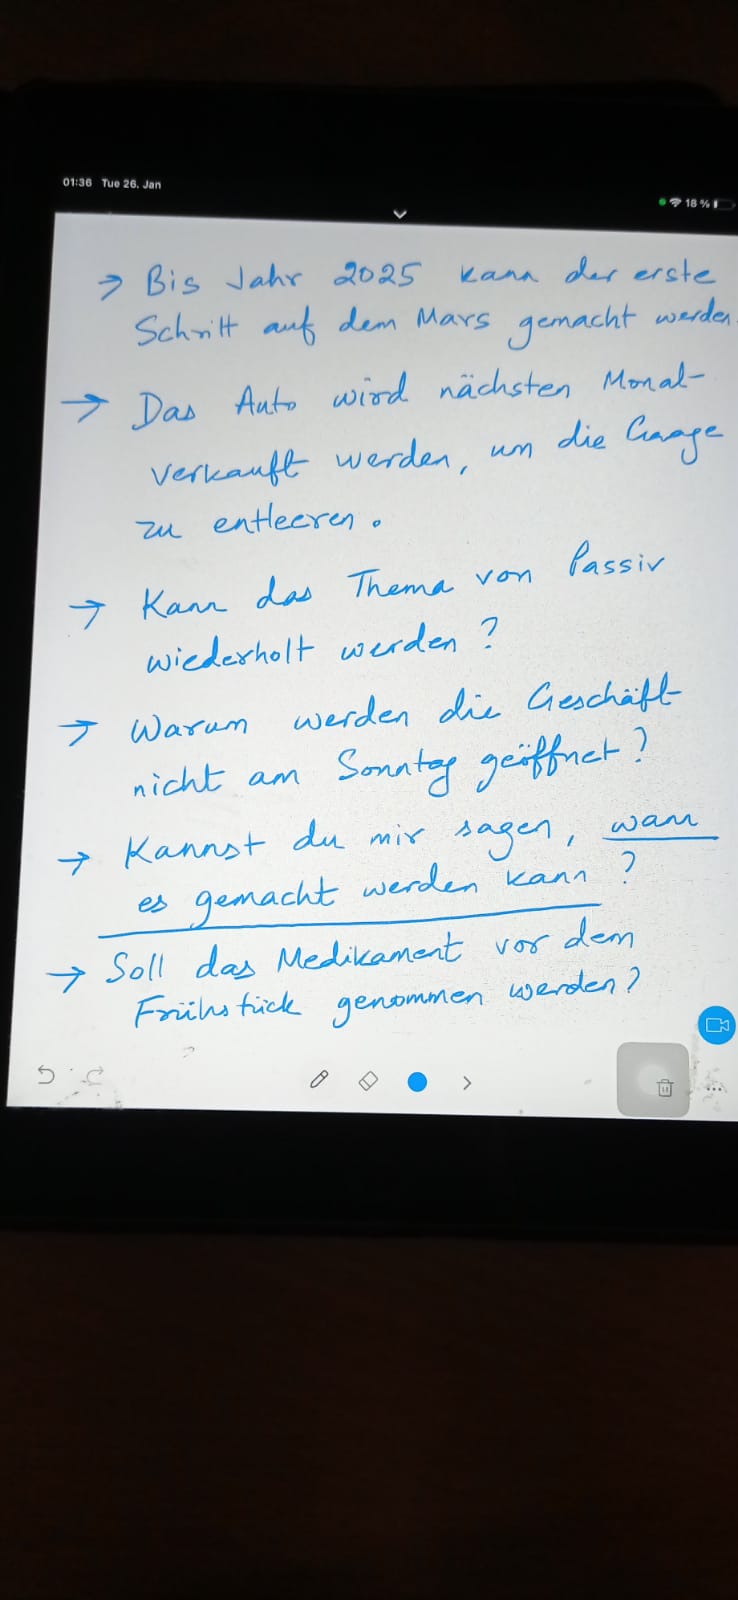 01:36 Tue 26. Jan
18 %
→ Bis Jahr 2025 kann der erste
Schritt auf dem Mars gemacht werden.
→ Das Auto wird nächsten Monat
verkauft werden, um die Garage
zu entleeren.
→ Kann das Thema von Passiv
wiederholt werden?
→ Warum werden die Geschäft
nicht am Sonntag geöffnet?
→ Kannst du mir sagen, wann
es gemacht werden kann?
→ Soll das Medikament vor dem
Frühstück genommen werden?